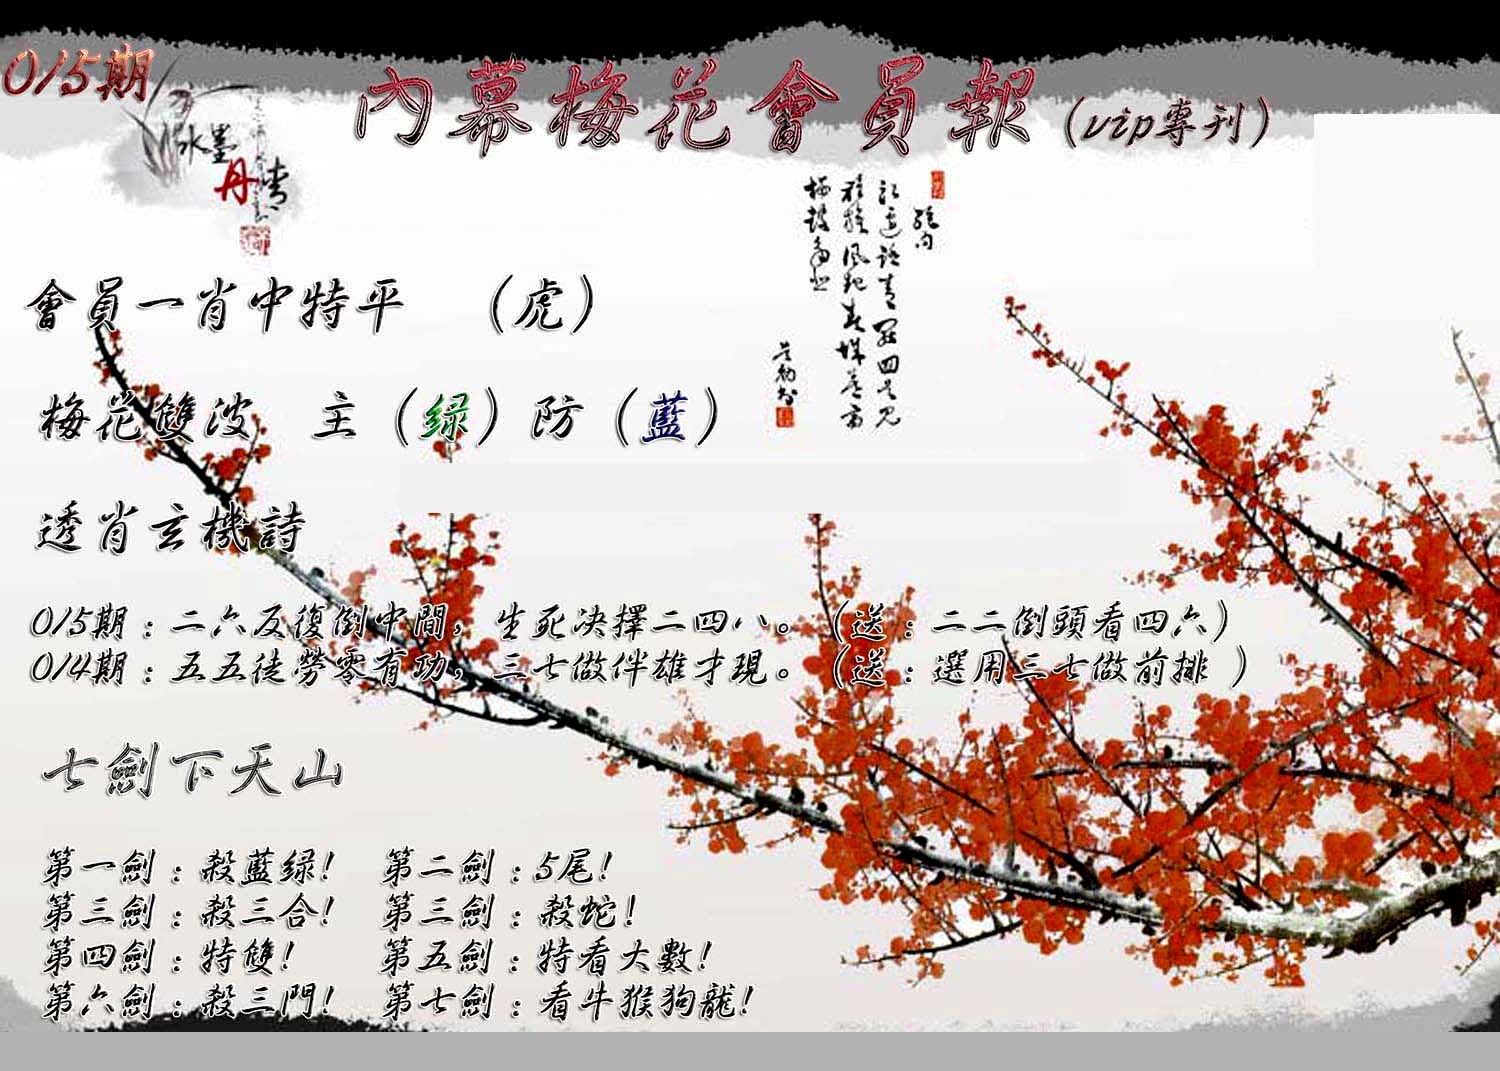 015期
內幕梅花會員報(vip專刊)
水墨
丹青
會員一肖中特平 （虎）
梅花雙波 主（绿）防（藍）
透肖玄機詩
015期：二六反復倒中間，生死决擇二四八。（送：二二倒頭看四六）
014期：五五徒勞零有功，三七做伴雄才現。（送：選用三七做前排 ）
七劍下天山
第一劍：殺藍绿! 第二劍：5尾!
第三劍：殺三合! 第三劍：殺蛇!
第四劍：特雙! 第五劍：特看大數!
第六劍：殺三門! 第七劍：看牛猴狗龍!